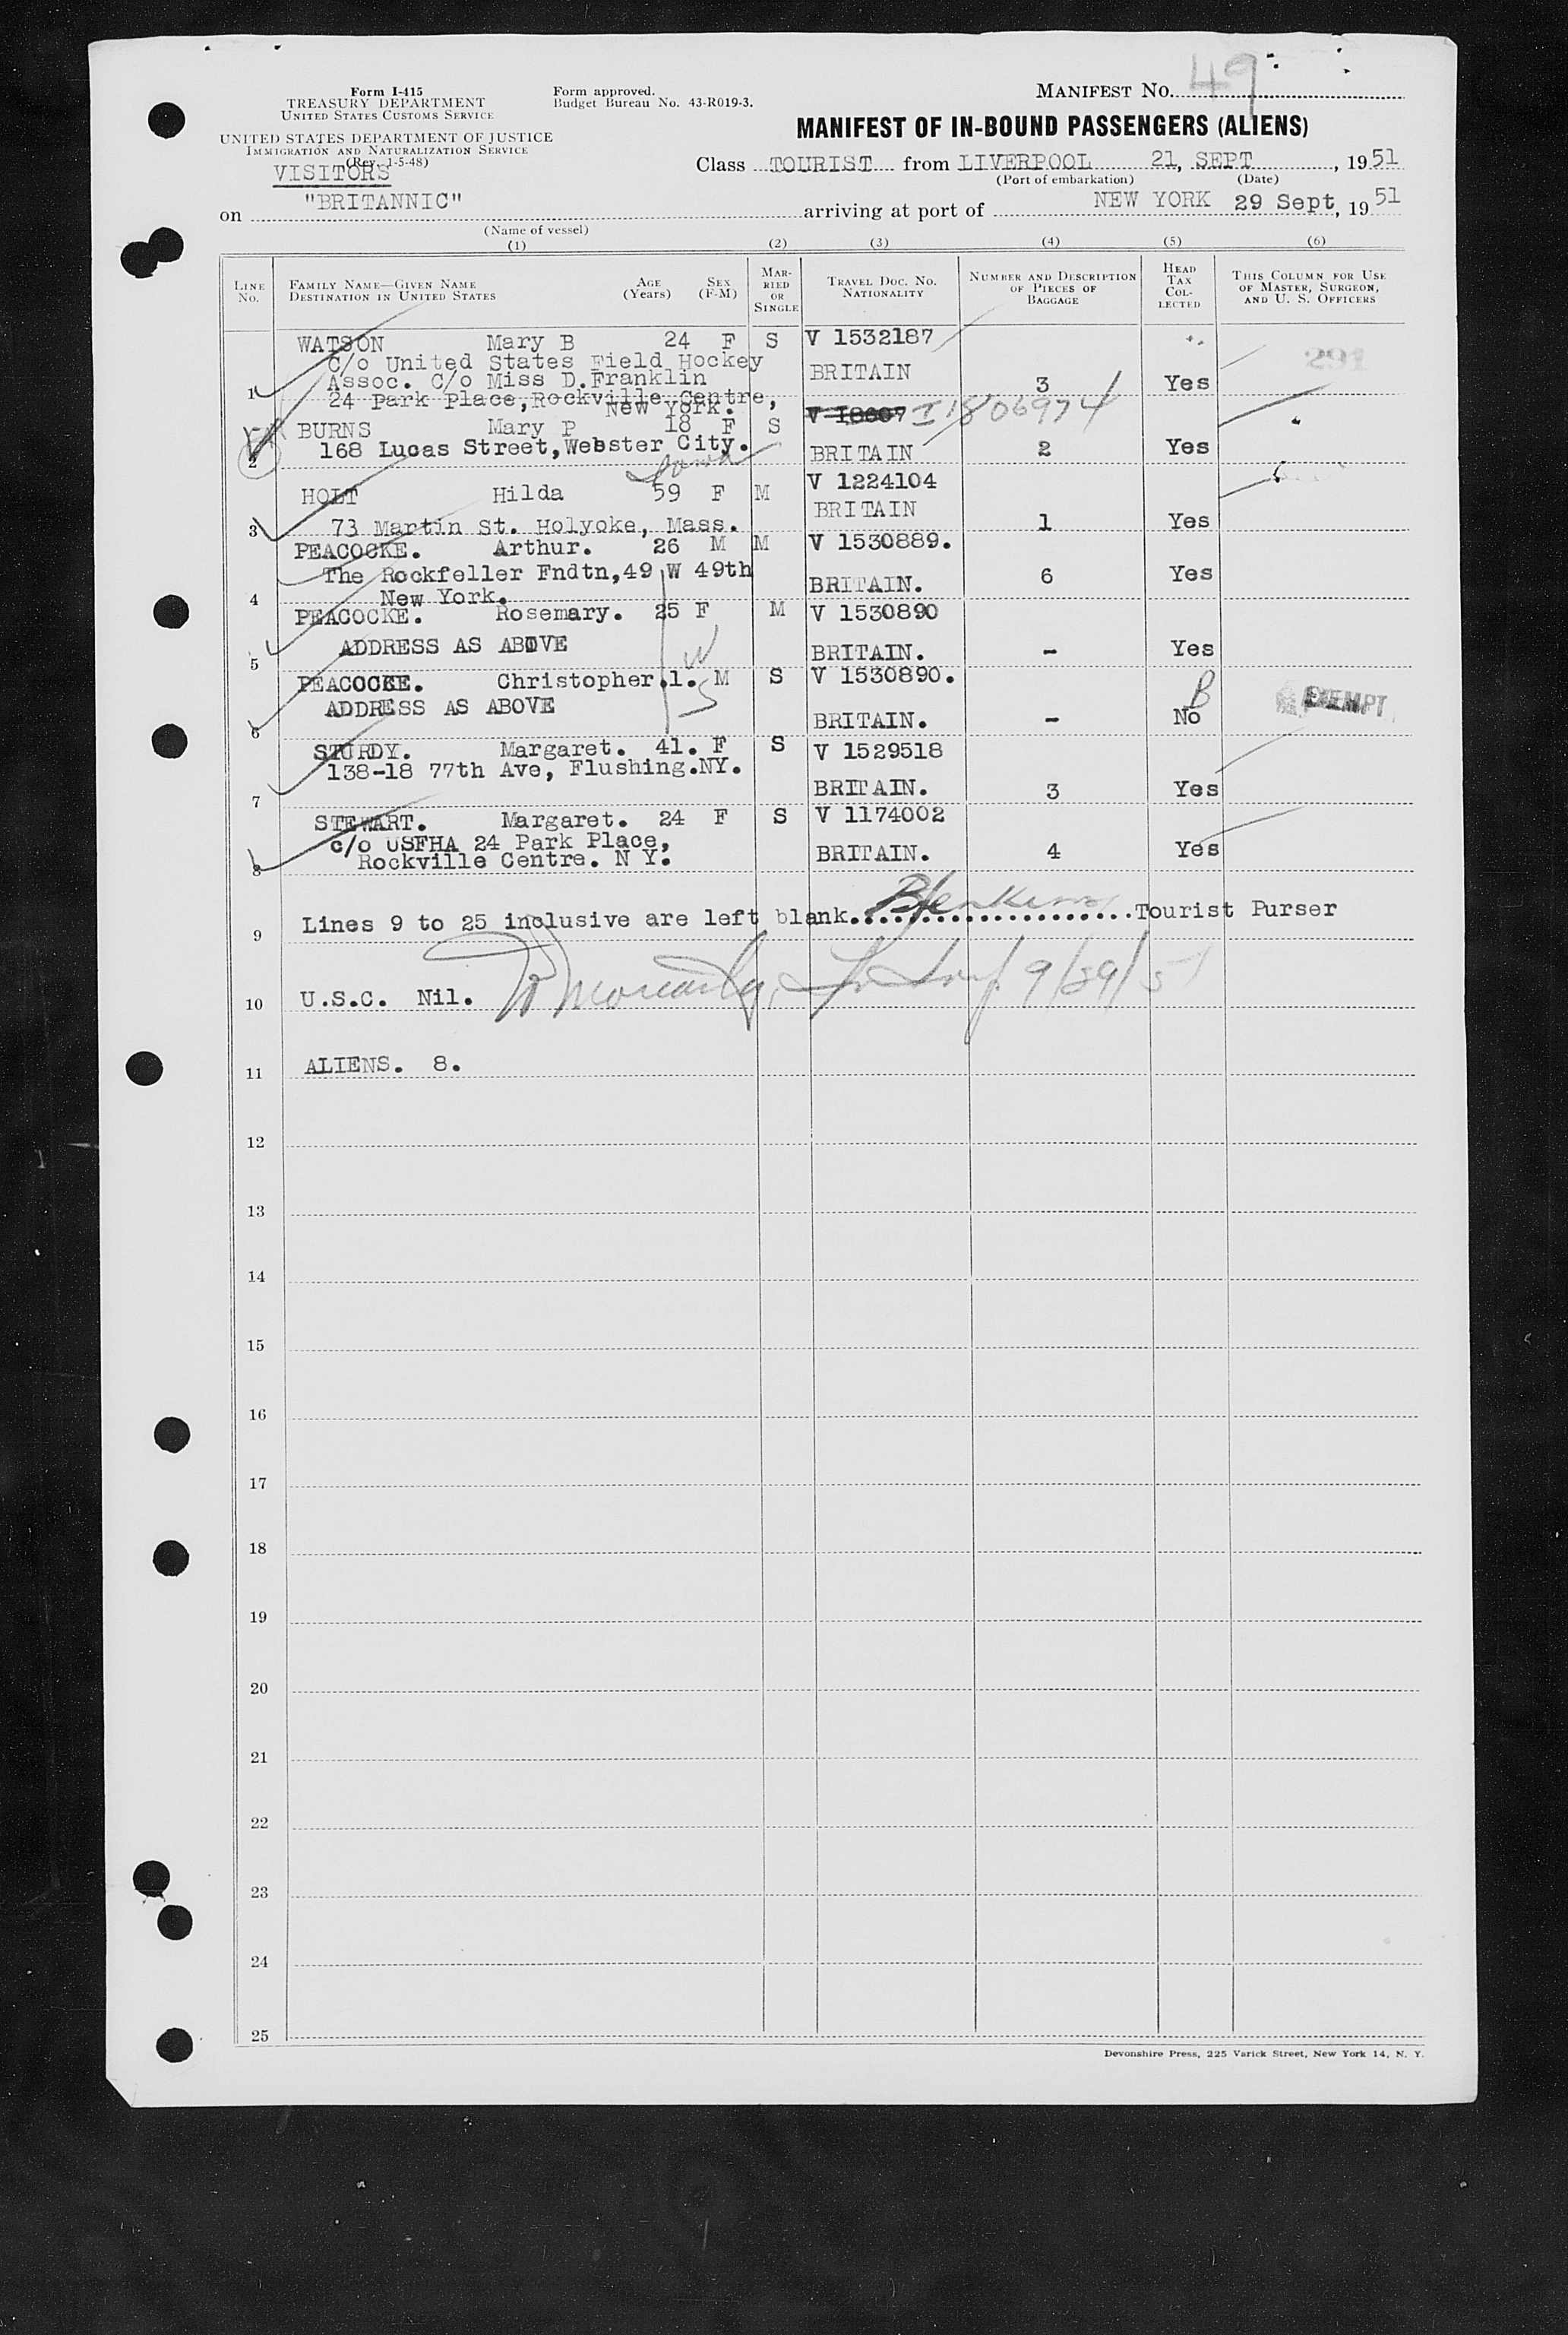 Form I-415
TREASURY DEPARTMENT
UNITED STATES CUSTOMS SERVICE
UNITED STATES DEPARTMENT OF JUSTICE
IMMIGRATION AND NATURALIZATION SERVICE
(Rev. 1-5-48)
VISITORS
Form approved.
Budget Bureau No. 43-R019-3.
MANIFEST NO. 49
MANIFEST OF IN-BOUND PASSENGERS (ALIENS)
Class TOURIST from LIVERPOOL 21, SEPT, 1951
(Port of embarkation) (Date)
on "BRITANNIC" arriving at port of NEW YORK 29 Sept, 1951
(Name of vessel)
(1) (2) (3) (4) (5) (6)
LINE NO. FAMILY NAME—GIVEN NAME DESTINATION IN UNITED STATES AGE (Years) SEX (F-M) MARRIED OR SINGLE TRAVEL DOC. NO. NATIONALITY NUMBER AND DESCRIPTION OF PIECES OF BAGGAGE HEAD TAX COLLECTED THIS COLUMN FOR USE OF MASTER, SURGEON, AND U. S. OFFICERS
WATSON Mary B 24 F S V 1532187
C/o United States Field Hockey
Assoc. C/o Miss D.Franklin BRITAIN 291
1 24 Park Place,Rockville Centre, 3 Yes
New York.
BURNS Mary P 18 F S V 18607 I1806974
2 168 Lucas Street,Webster City. BRITAIN 2 Yes
Iowa
HOLT Hilda 59 F M V 1224104
BRITAIN
3 73 Martin St. Holyoke, Mass. 1 Yes
PEACOCKE. Arthur. 26 M M V 1530889.
The Rockfeller Fndtn,49 W 49th BRITAIN. 6 Yes
4 New York.
PEACOCKE. Rosemary. 25 F M V 1530890
5 ADDRESS AS ABOVE BRITAIN. - Yes
W
PEACOCKE. Christopher.1. M S V 1530890.
S B
6 ADDRESS AS ABOVE BRITAIN. - No EXEMPT
STURDY. Margaret. 41. F S V 1529518
138-18 77th Ave, Flushing.NY.
7 BRITAIN. 3 Yes
STEWART. Margaret. 24 F S V 1174002
c/o USFHA 24 Park Place,
8 Rockville Centre. N Y. BRITAIN. 4 Yes
9 Lines 9 to 25 inclusive are left blank......................Tourist Purser
10 U.S.C. Nil. 9/29/51
11 ALIENS. 8.
12
13
14
15
16
17
18
19
20
21
22
23
24
25
Devonshire Press, 225 Varick Street, New York 14, N. Y.